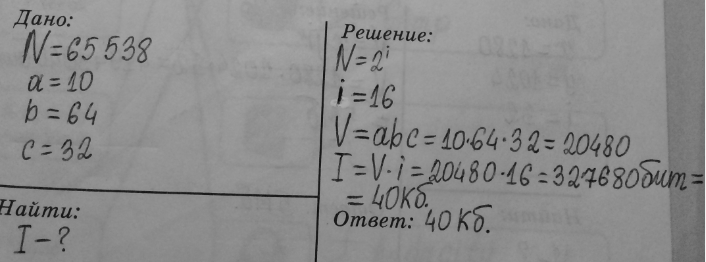 Дано:
N=65538
a=10
b=64
c=32
Найти:
I-?
Решение:
N=2ⁱ
i=16
V=abc=10·64·32=20480
I=V·i=20480·16=327680бит=
=40Кб.
Ответ: 40Кб.